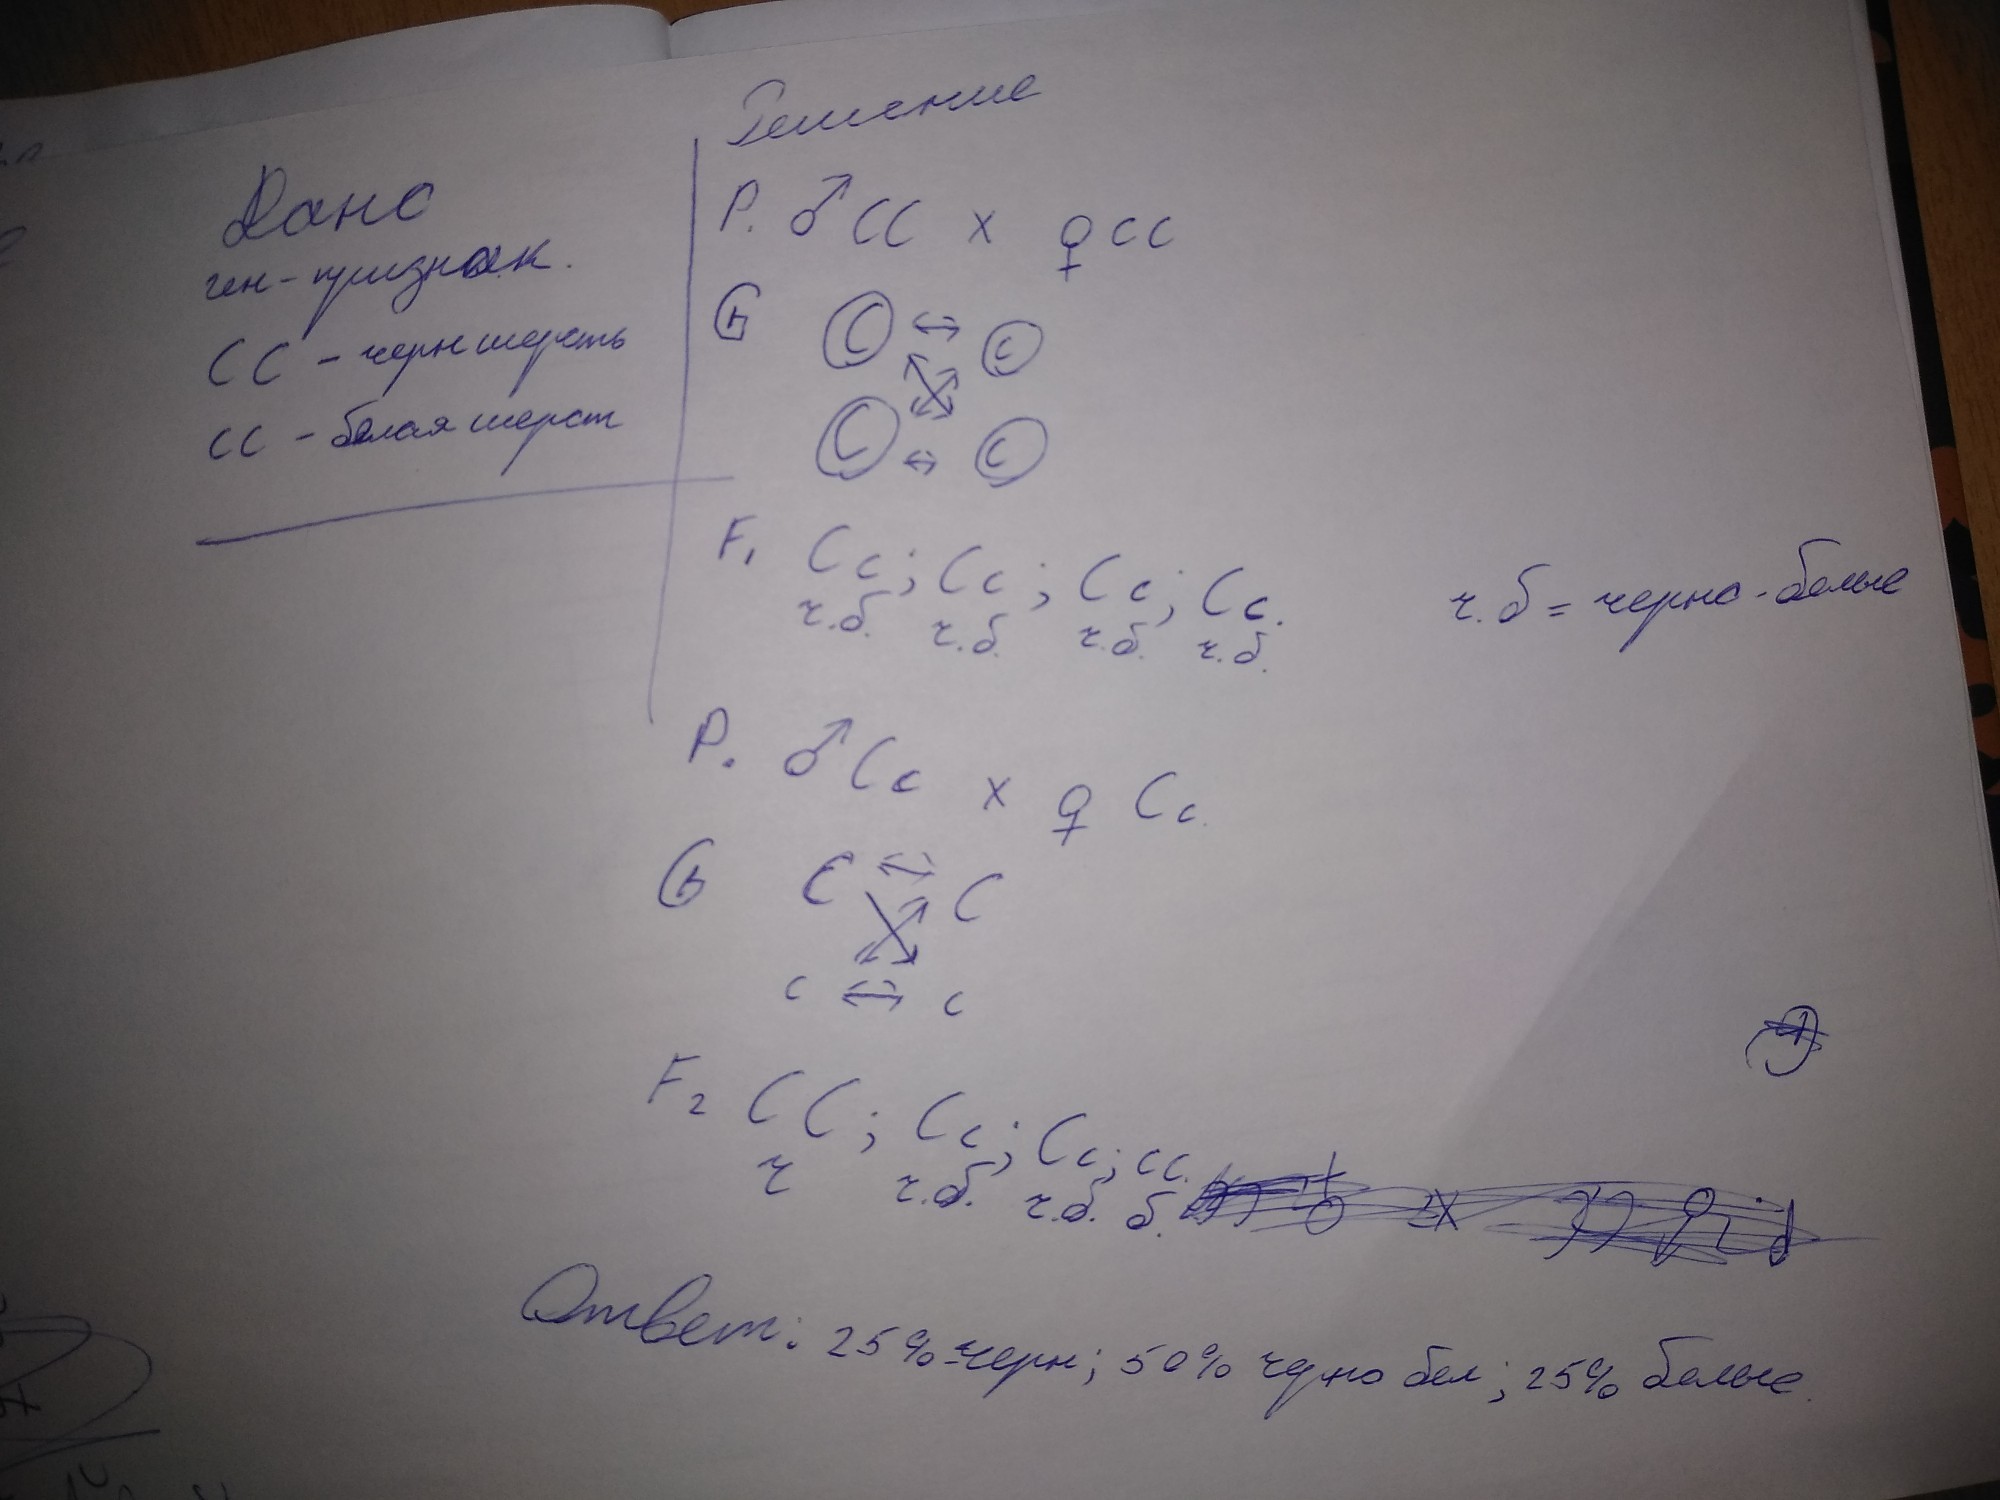 Дано
ген-признак.
CC - черн шерсть
cc - белая шерст
Решение
P. ♂ CC x ♀ cc
G C ↔ c
C ↔ c
F₁ Cc; Cc; Cc; Cc.
ч.б. ч.б. ч.б. ч.б.
ч.б = черно-белые
P. ♂ Cc x ♀ Cc.
G C ↔ C
c ↔ c
F₂ CC; Cc; Cc; cc.
ч ч.б. ч.б. б.
Ответ: 25% черн; 50% черно бел; 25% белые.